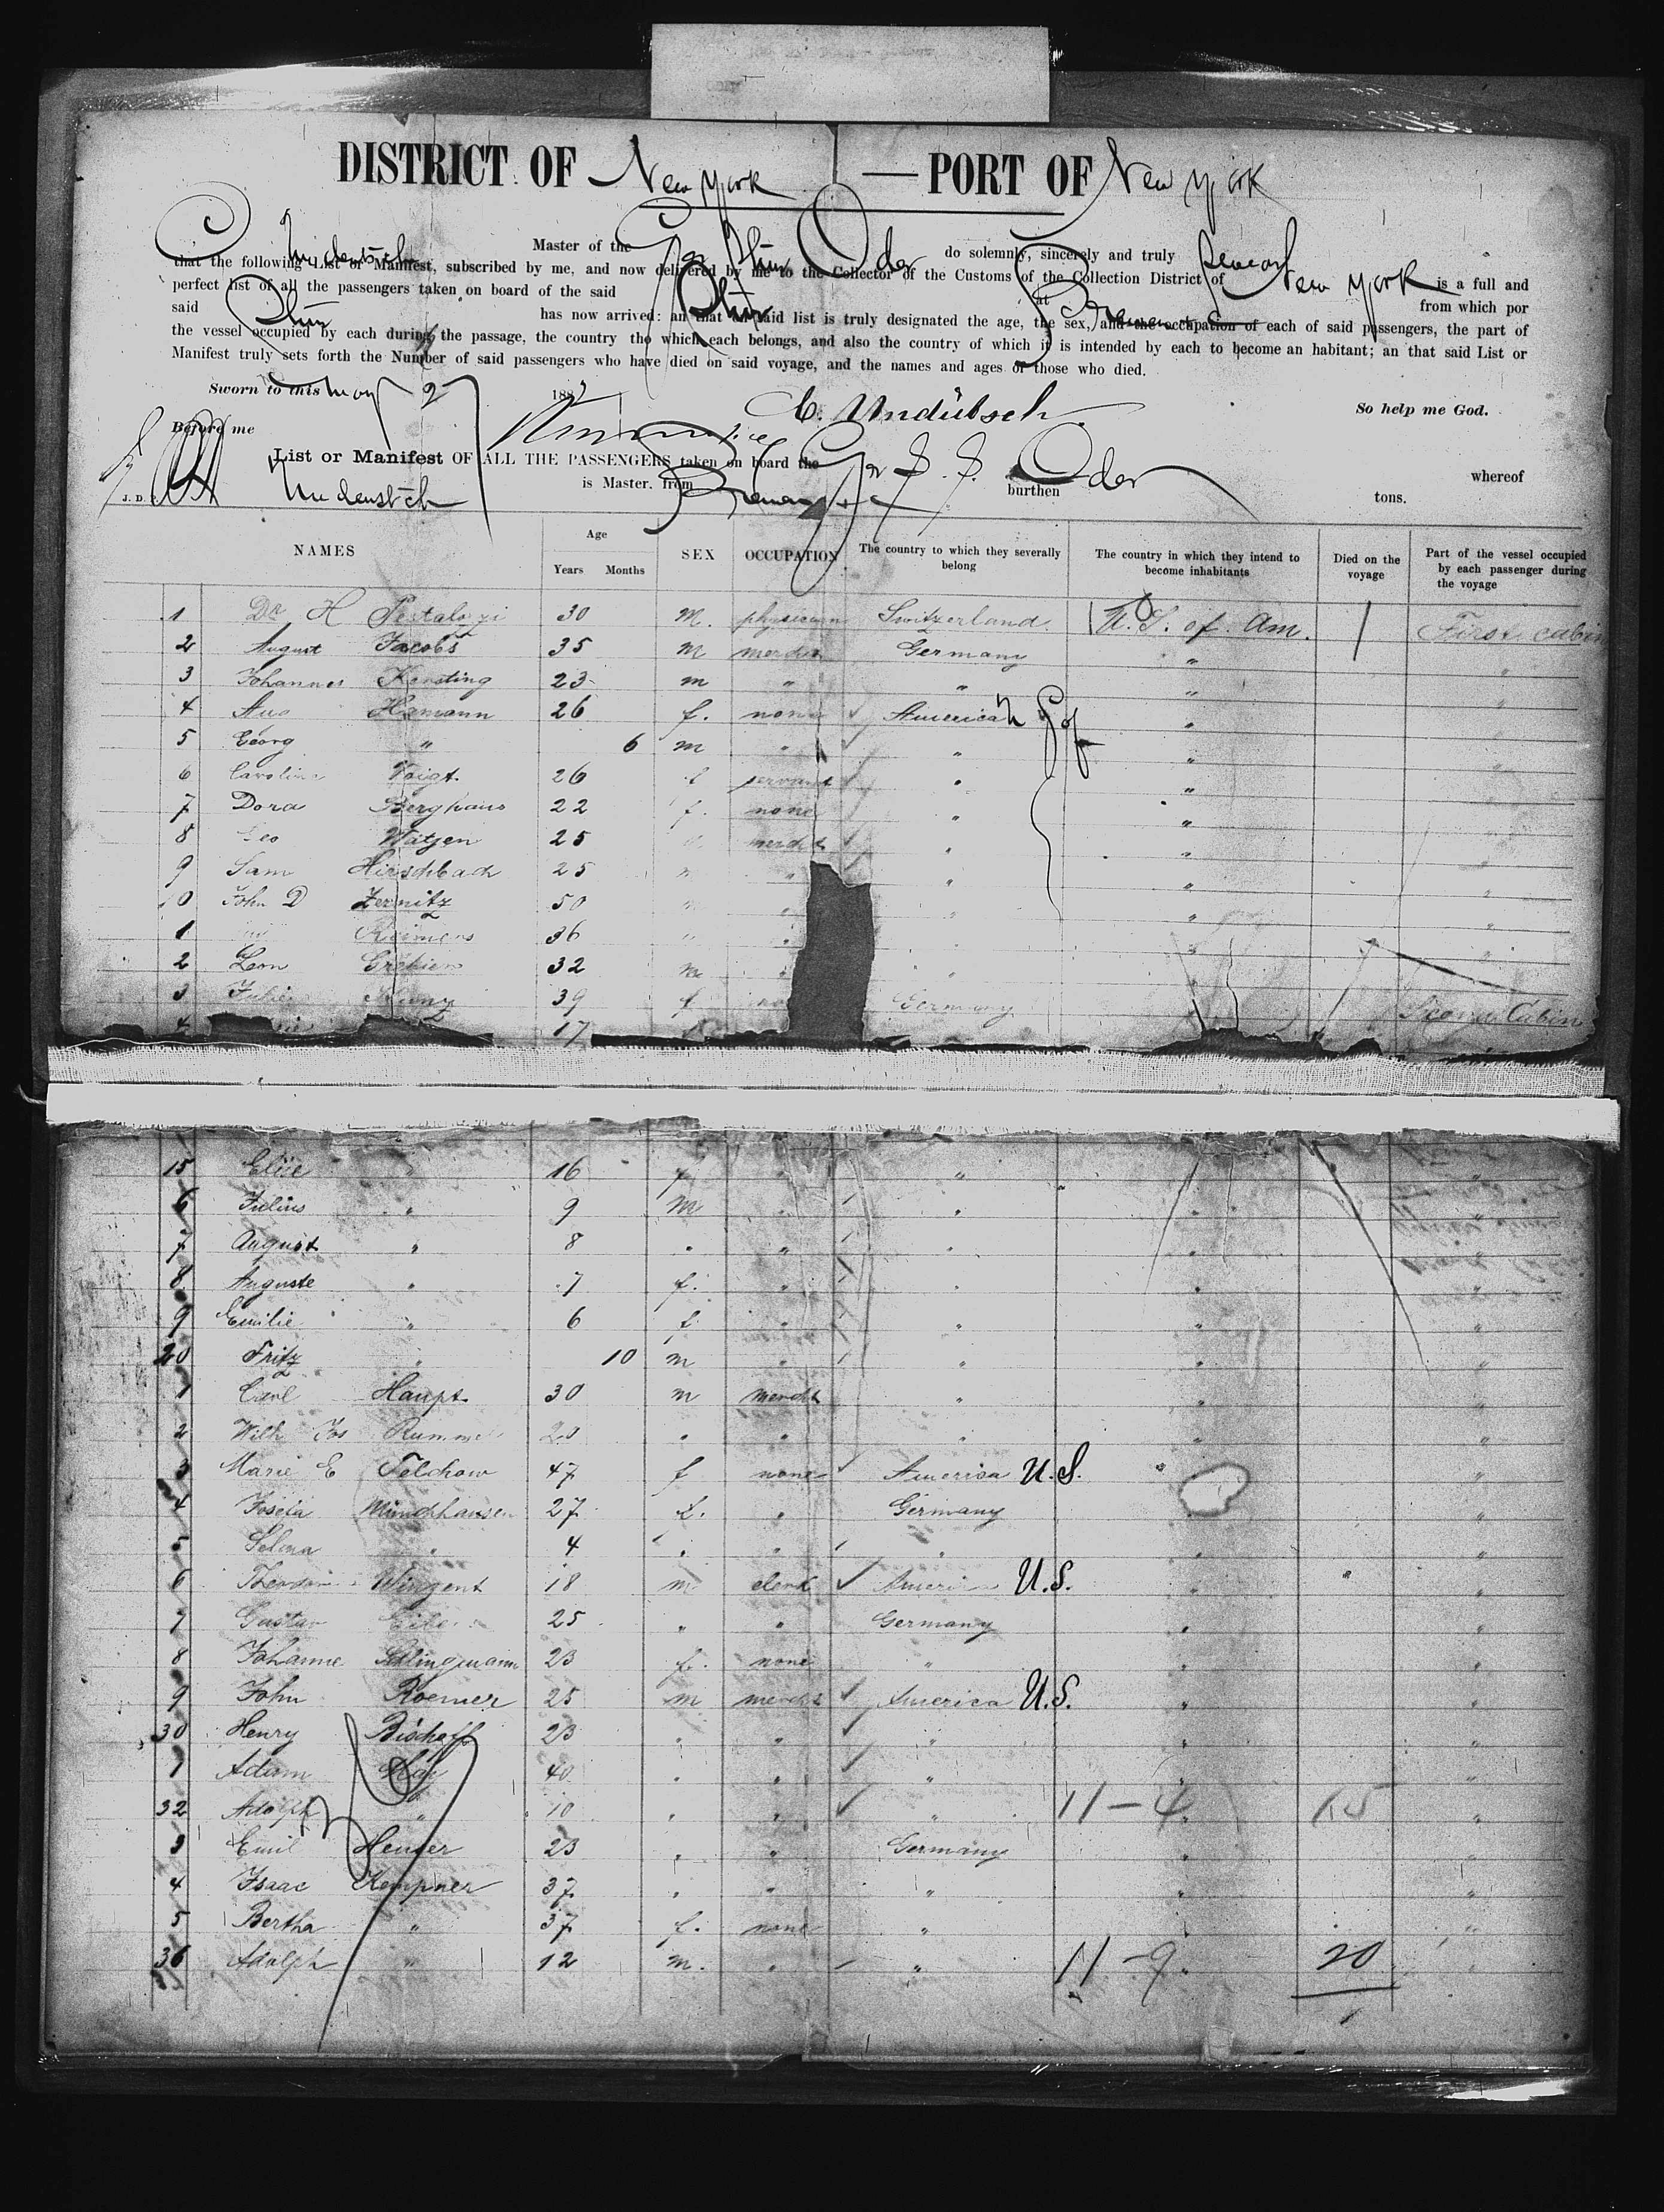 DISTRICT OF New York — PORT OF New York
C Undeutsch Master of the Ger Ship Oder do solemnly, sincerely and truly swear
that the following List or Manifest, subscribed by me, and now delivered by me to the Collector of the Customs of the Collection District of New York is a full and
perfect list of all the passengers taken on board of the said Ship at Bremen from which por
said Ship has now arrived: an that on said list is truly designated the age, the sex, and the occupation of each of said passengers, the part of
the vessel occupied by each during the passage, the country tho which each belongs, and also the country of which it is intended by each to become an habitant; an that said List or
Manifest truly sets forth the Number of said passengers who have died on said voyage, and the names and ages of those who died.
Sworn to this May 27 1882 C. Undütsch So help me God.
Before me
List or Manifest OF ALL THE PASSENGERS taken on board the Ger S. S. Oder whereof
J. D. Undeutsch is Master, from Bremen burthen tons.
NAMES Age Years Months SEX OCCUPATION The country to which they severally belong The country in which they intend to become inhabitants Died on the voyage Part of the vessel occupied by each passenger during the voyage
1 Dr H Pestalozzi 30 M. physician Switzerland U.S. of Am. First cabin
2 August Jacobs 35 m Germany " "
3 Johannes Kersting 23 m " " " "
4 Hamann 26 f. none America " "
5 Georg " 6 m " " " "
6 Caroline Voigt 26 f servant " " "
7 Dora Berghaus 22 f. none " " "
8 Geo Watjen 25 mercht " " "
9 Sam Hirschbach 25 " " " " "
10 John D Zernitz 50 " " " " "
1 Reimers 36 " " " "
2 Leon 32 m " " "
3 39 f Germany Second Cabin
4 17
15 Elise " 16 f " " "
6 Julius " 9 m " " " "
7 August " 8 " " " " "
8 Auguste " 7 f. " " " "
9 Emilie " 6 f " " " "
20 Fritz " 10 m " " " "
1 Carl Haupt 30 m mercht " " "
2 Wilh Jos 20 " " " " "
3 Marie E Felchow 47 f none America U.S. " "
4 Münchhausen 27 f. " Germany "
5 Selma " 4 " " " " "
6 Wingent 18 m clerk America U.S. " "
7 Gustav 25 " " Germany " "
8 Johanne Schlingmann 23 f. none " " "
9 John Roemer 25 m mercht America U.S. " "
30 Henry Bischoff 23 " " " " "
1 Adam 40 " " " " "
32 Adolph " 10 " " " 11 — 4 15 "
3 Emil Heuser 23 " " Germany " "
4 Isaac Kempner 37 " " " " "
5 Bertha " 37 f. none " " "
36 Adolph " 12 m. " " 11 - 9 20 "